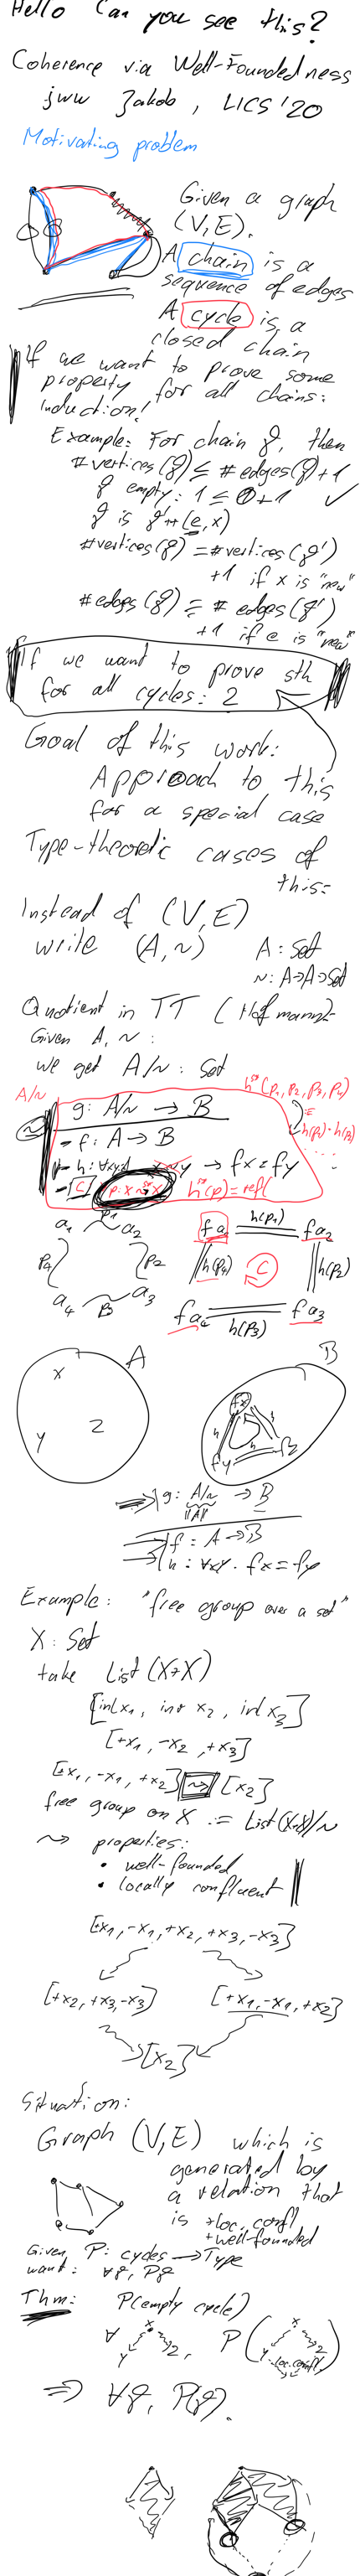 Hello Can you see this?
Coherence via Well-Foundedness
jww Jakob, LICS '20
Motivating problem
Given a graph
(V,E).
A chain is a
sequence of edges
A cycle is a
closed chain
If we want to prove some
property for all chains:
induction!
Example: For chain γ, then
#vertices(γ) ≤ #edges(γ)+1
γ empty: 1 ≤ 0+1 ✓
γ is γ'++(e,x)
#vertices(γ) = #vertices(γ')
+1 if x is "new"
#edges(γ) = # edges(γ')
+1 if e is "new"
If we want to prove sth
for all cycles: ?
Goal of this work:
Approach to this
for a special case
Type-theoretic cases of
this:
Instead of (V,E)
write (A,~) A: Set
~: A→A→Set
Quotient in TT (Hofmann):
Given A, ~:
we get A/~: Set
A/~
g: A/~ → B
f: A → B
h: ∀xy. x~y → fx=fy
h(p)=refl
a₁ p₁ a₂
p₄ p₂
a₄ p₃ a₃
fa₁ h(p₁) fa₂
h(p₄) C h(p₂)
fa₄ h(p₃) fa₃
A
B
x
y
z
fx
fy
fz
g: A/~ → B
||A||
f: A → B
h: ∀xy. fx=fy
Example: "free group over a set"
X: Set
take List(X+X)
[inl x₁, inr x₂, inl x₃]
[+x₁, -x₂, +x₃]
[+x₁, -x₁, +x₂] ⇝ [x₂]
free group on X := List(X+X)/~
⇝ properties:
• well-founded
• locally confluent
[+x₁, -x₁, +x₂, +x₃, -x₃]
[+x₂, +x₃, -x₃] [+x₁, -x₁, +x₂]
[x₂]
Situation:
Graph (V,E) which is
generated by
a relation that
is +loc. confl
+well-founded
Given P: cycles → Type
want: ∀γ, Pγ
Thm: P(empty cycle)
∀ x y z, P( x y z loc. confl )
⇒ ∀γ, P(γ).